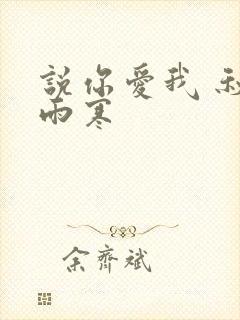 說你愛我
雨寒
余齊斌